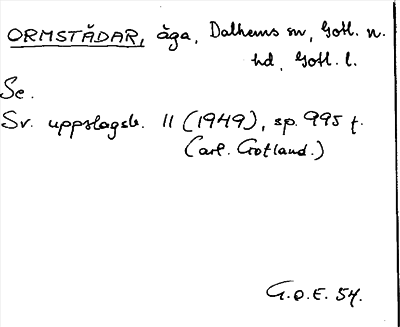 ORMSTÄDAR, äga, Dalhems sn, Gotl. n.
hd, Gotl. l.
Se.
Sv. uppslagsb. 11 (1949), sp. 995 f.
(Carl. Gotland.)
G.O.E. 54.